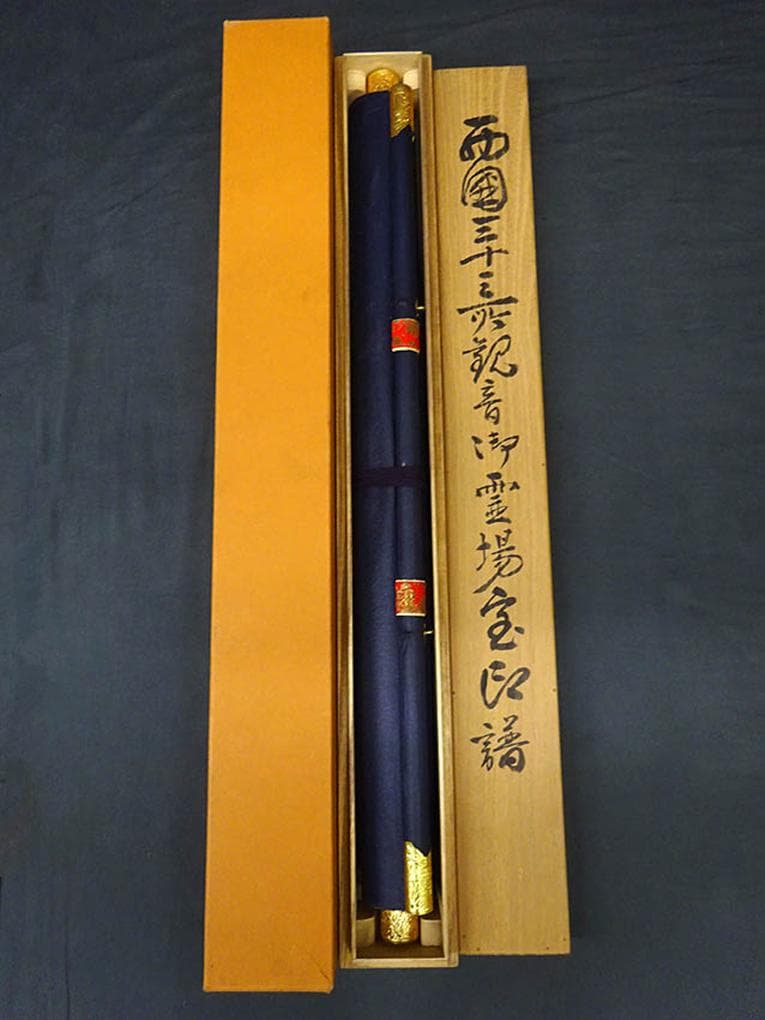 西國三十三所観音御霊場宝印譜